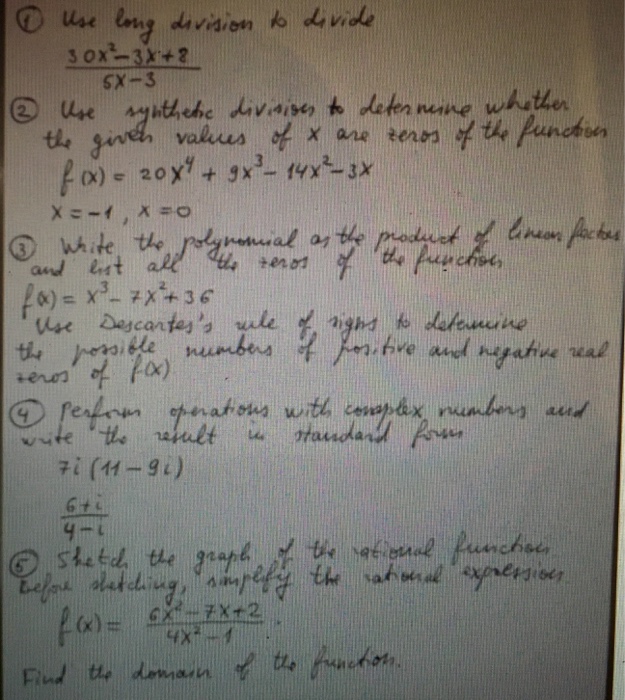 ① Use long division to divide
30x²-3x+8
5x-3
② Use synthetic division to determine whether
the given values of x are zeros of the function
f(x) = 20x⁴ + 9x³ - 14x² - 3x
x = -1, x = 0
③ Write the polynomial as the product of linear factors
and list all the zeros of the function
f(x) = x³ - 7x² + 36
Use Descartes's rule of signs to determine
the possible numbers of positive and negative real
zeros of f(x)
④ Perform operations with complex numbers and
write the result in standard form
7i (11-9i)
6+i
4-i
⑤ Sketch the graph of the rational function
Before sketching, simplify the rational expression
f(x) = 6x²-7x+2
4x²-1
Find the domain of the function.